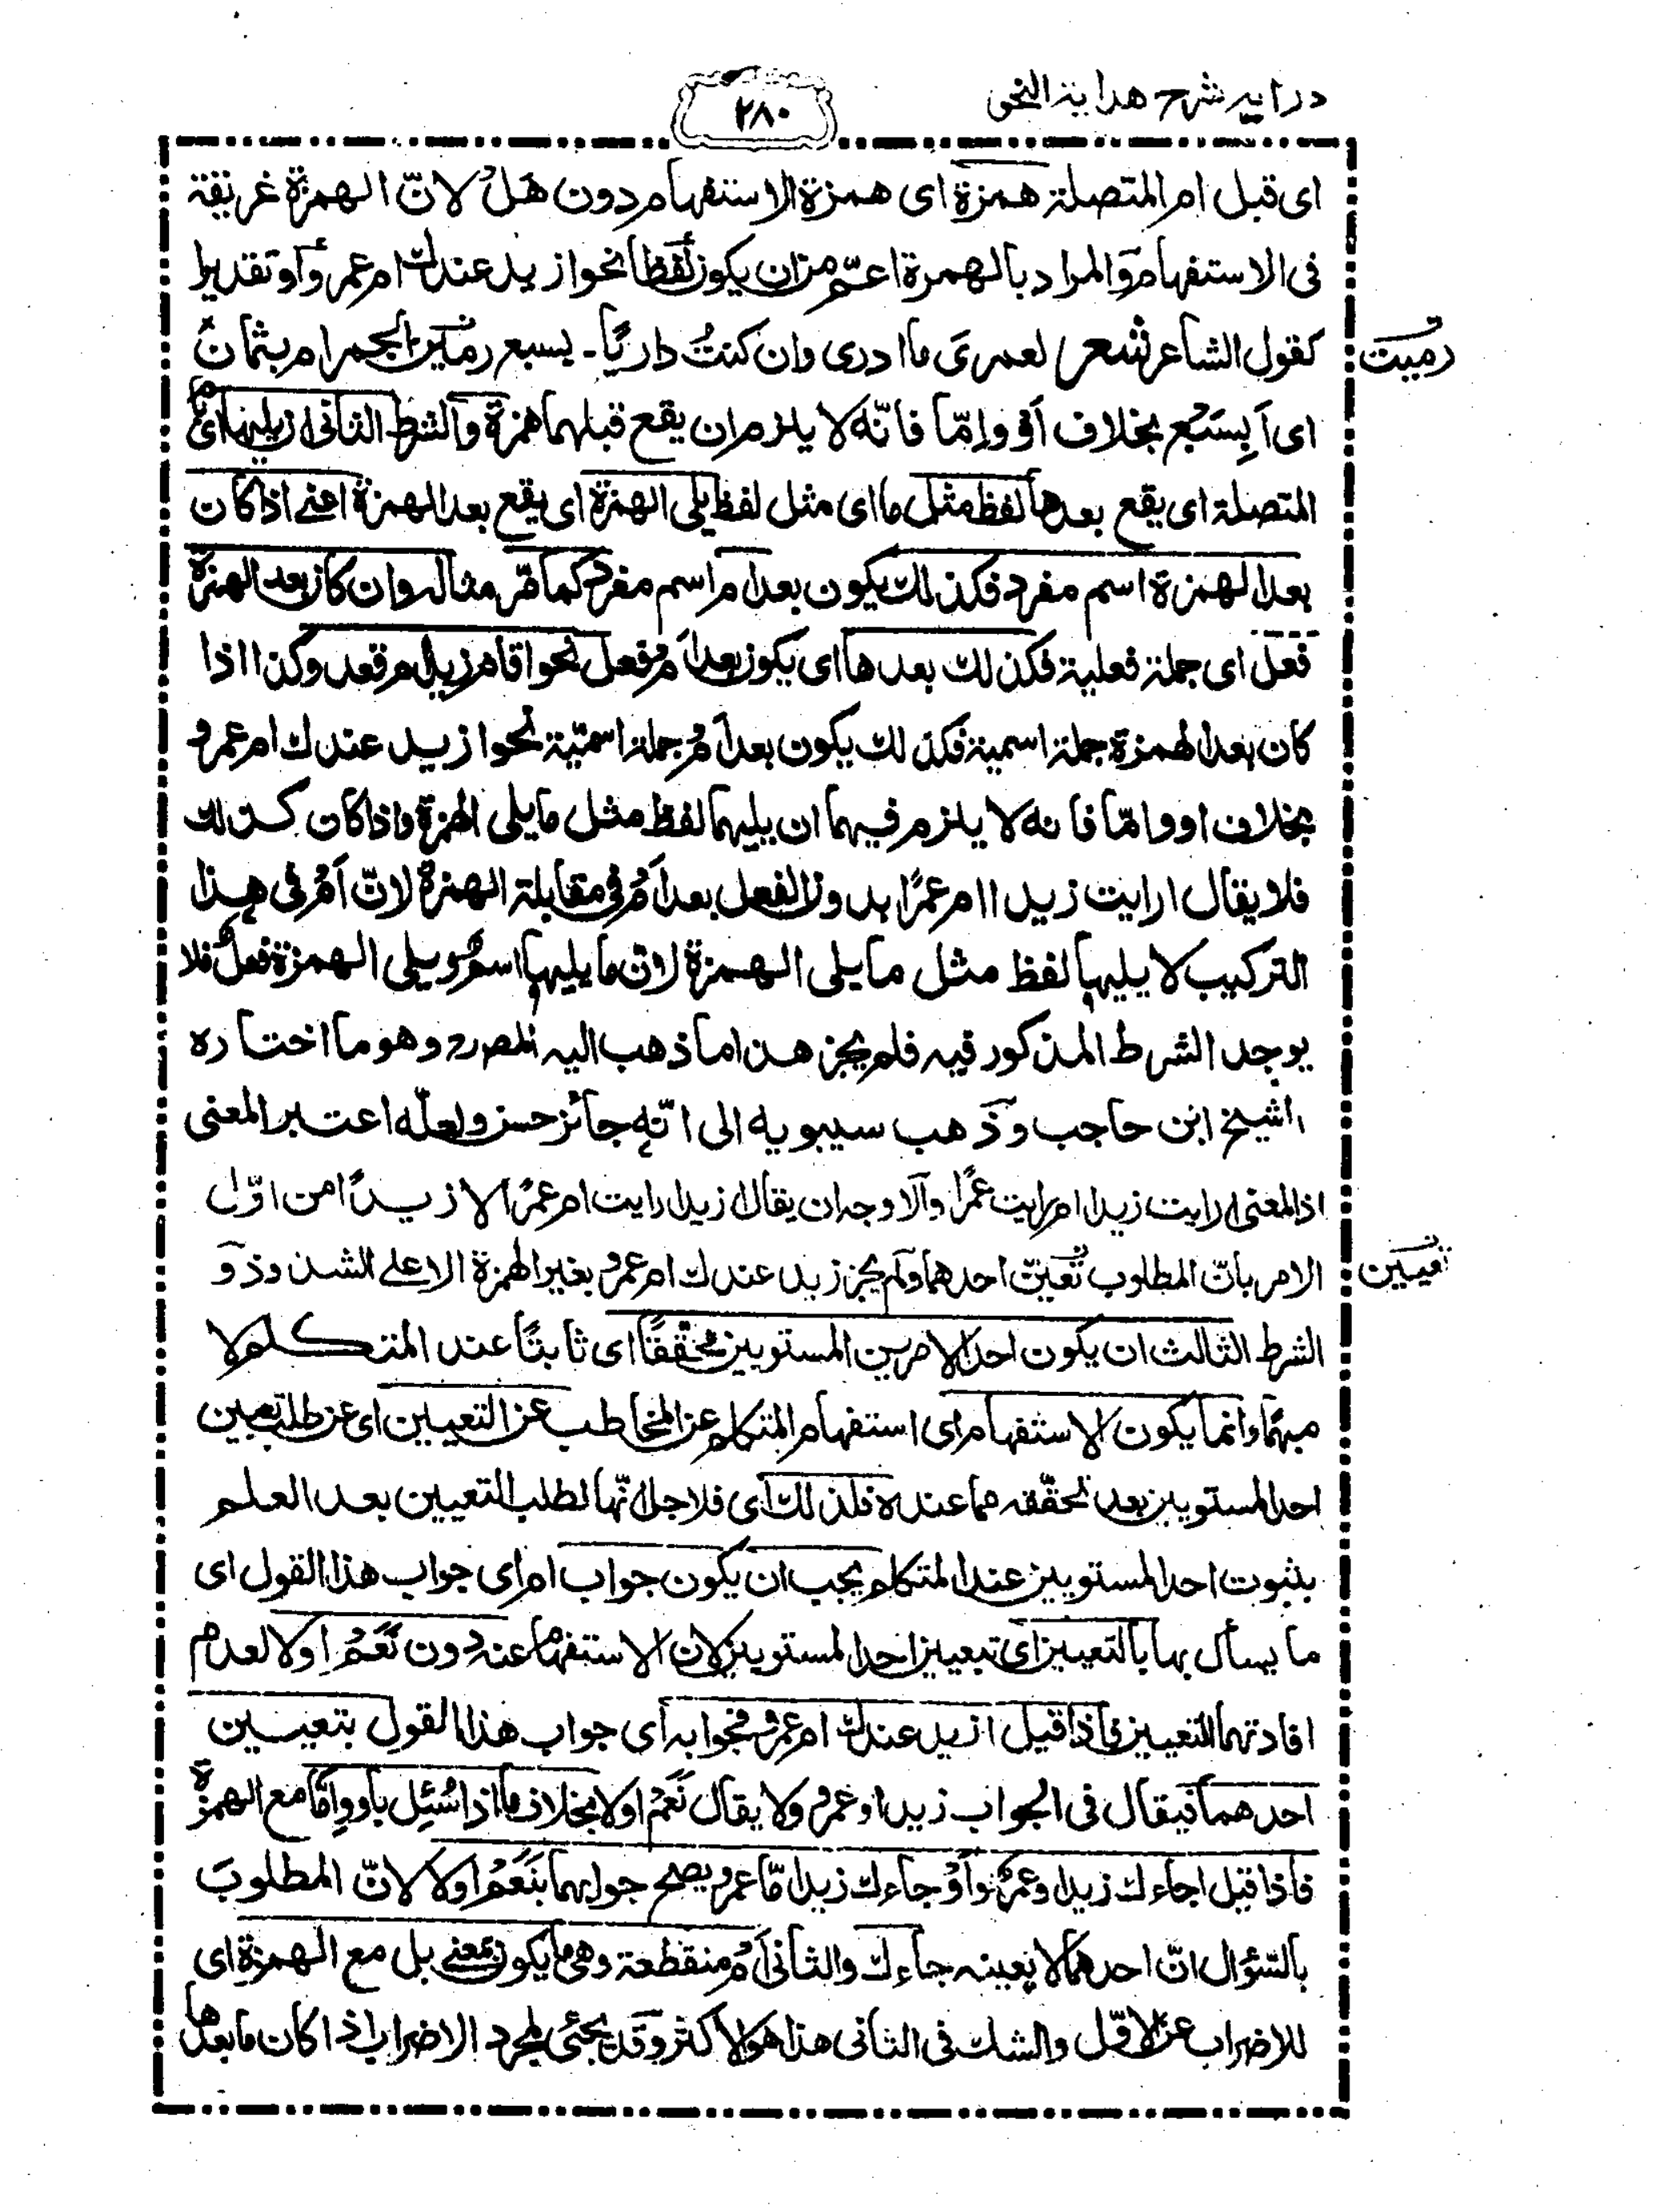 درايه شرح هداية النحو
٢٨٠
اى قبل ام المتصلة همزة اى همزة الاستفهام دون هَلْ لانّ الهمزة غريقة
فى الاستفهام والمراد بالهمزة اعمّ من ان يكون لفظا نحو ازيد عندك ام عمرو أو تقديرا
كقول الشاعر شعر لعمرىَ ما ادرى وان كنتُ داريًا ـ بسبع رمين الجمر ام بثمان
رميت
اى أبِسَبْع بخلاف أوْ وإمّا فانّه لا يلزم ان يقع قبلهما همزة والشرط الثانى ان يليها اى ام
المتصلة اى يقع بعدها لفظ مثل ما اى مثل لفظ يلى الهمزة اى يقع بعد الهمزة اعنى اذا كان
بعد الهمزة اسم مفرد فكذلك يكون بعد ام اسم مفرد كما مرّ مثاله وان كان بعد الهمزة
فعل اى جملة فعلية فكذلك بعدها اى يكون بعد أمْ فعل نحو اقام زيد ام قعد وكذا اذا
كان بعد الهمزة جملة اسمية فكذلك يكون بعد أمْ جملة اسميّة نحو ازيد عندك ام عمرو
بخلاف او وامّا فانه لا يلزم فيهما ان يليهما لفظ مثل ما يلى الهمزة واذا كان كذلك
فلا يقال ارايت زيدا ام عمرًا بدون الفعل بعد أمْ فى مقابلة الهمزة لانّ أمْ فى هذا
التركيب لا يليها لفظ مثل ما يلى الهمزة لانّ ما يليها اسمٌ ويلى الهمزة فعلٌ فلا
يوجد الشرط المذكور فيه فلم يجز هذا ما ذهب اليه المصرح وهو ما اختاره
الشيخ ابن حاجب وذهب سيبويه الى انّه جائز حسن ولعلّه اعتبر المعنى
اذ المعنى ارايت زيدا ام رايت عمرًا والاوجه ان يقال ازيدا رايت ام عمرًا لا زيدًا من اوّل
الامر بانّ المطلوب تعيّن احدهما ولم يجز زيد عندك ام عمرو بغير الهمزة الا على الشذوذ و
تعيين
الشرط الثالث ان يكون احد الامرين المستويين محقّقًا اى ثابتًا عند المتكلم لا
مبهمًا وانما يكون الاستفهام اى استفهام المتكلم عن المخاطب عن التعيين اى عن طلب تعيين
احد المستويين بعد تحقّقه مما عنده فلذلك اى فلاجل انّها لطلب التعيين بعد العلم
بثبوت احد المستويين عند المتكلم يجب ان يكون جواب ام اى جواب هذا القول اى
ما يسأل بها بالتعيين اى تبعيين احد المستويين لان الاستفهام عنه دون نَعَمْ او لا لعدم
افادتهما التعيين فاذا قيل ازيد عندك ام عمرو فجوابه اى جواب هذا القول بتعيين
احدهما فيقال فى الجواب زيد او عمرو ولا يقال نَعَمْ او لا بخلاف ما اذا سُئِل باو وإمّا مع الهمزة
فاذا قيل اجاءك زيد او عمرٌو أوْ جاءك زيد امّا عمرو يصح جوابهما بنَعَمْ او لا لانّ المطلوبَ
بالسّؤال انّ احدهما لا بعينه جاءك والثانى أمْ منقطعة وهى ما يكون بمعنى بل مع الهمزة اى
للاضراب عن الاوّل والشك فى الثانى هذا هو الاكثر وقد يجئى لمجرد الاضراب اذا كان ما بعدها